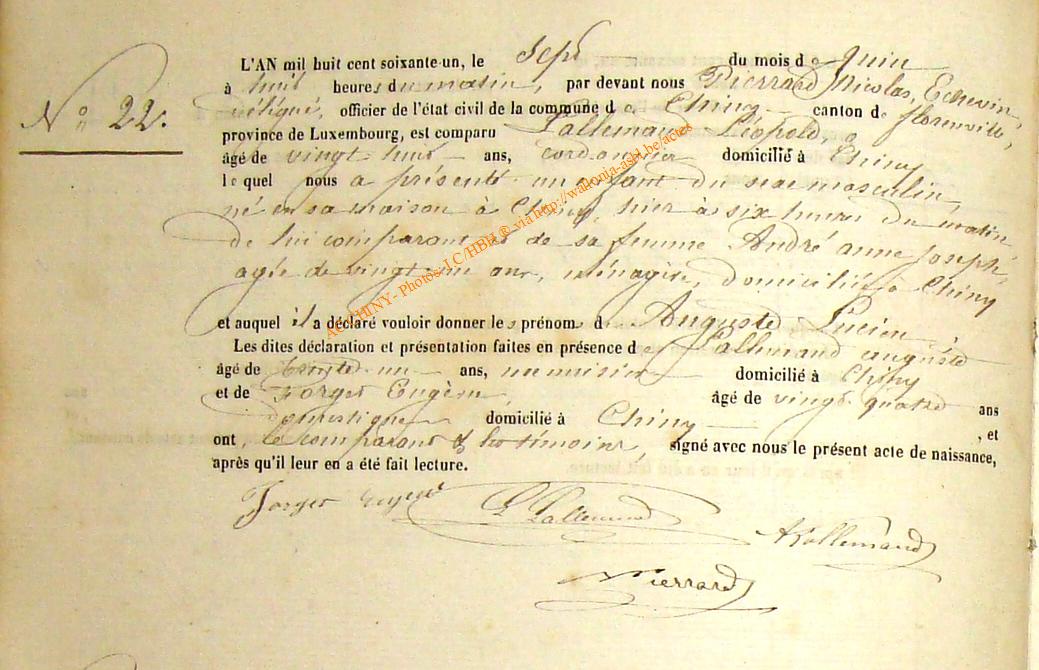 L'AN mil huit cent soixante-un, le Sept du mois de Juin
à huit heures du matin, par devant nous Pierrard Nicolas, Echevin
délégué, officier de l'état civil de la commune de Chiny canton de florenville,
N° 22. province de Luxembourg, est comparu Lallemand Léopold,
âgé de vingt huit ans, cordonnier domicilié à Chiny
lequel nous a présenté un enfant du sexe masculin,
né en sa maison à Chiny, hier à six heures du matin
de lui comparant et de sa femme André anne joseph,
agée de vingt-un ans, ménagère, domiciliée à Chiny
et auquel il a déclaré vouloir donner les prénoms d Auguste Lucien.
Les dites déclaration et présentation faites en présence de Lallemand auguste
âgé de trente un ans, menuisier domicilié à Chiny
et de Forget Eugène, âgé de vingt quatre ans
domestique domicilié à Chiny , et
ont, le comparant & les témoins, signé avec nous le présent acte de naissance,
après qu'il leur en a été fait lecture.
Forget Eugène L Lallemand A Lallemand
Pierrard
AC CHINY - Photos JC/HBH ® via http://wallonia-asbl.be/actes